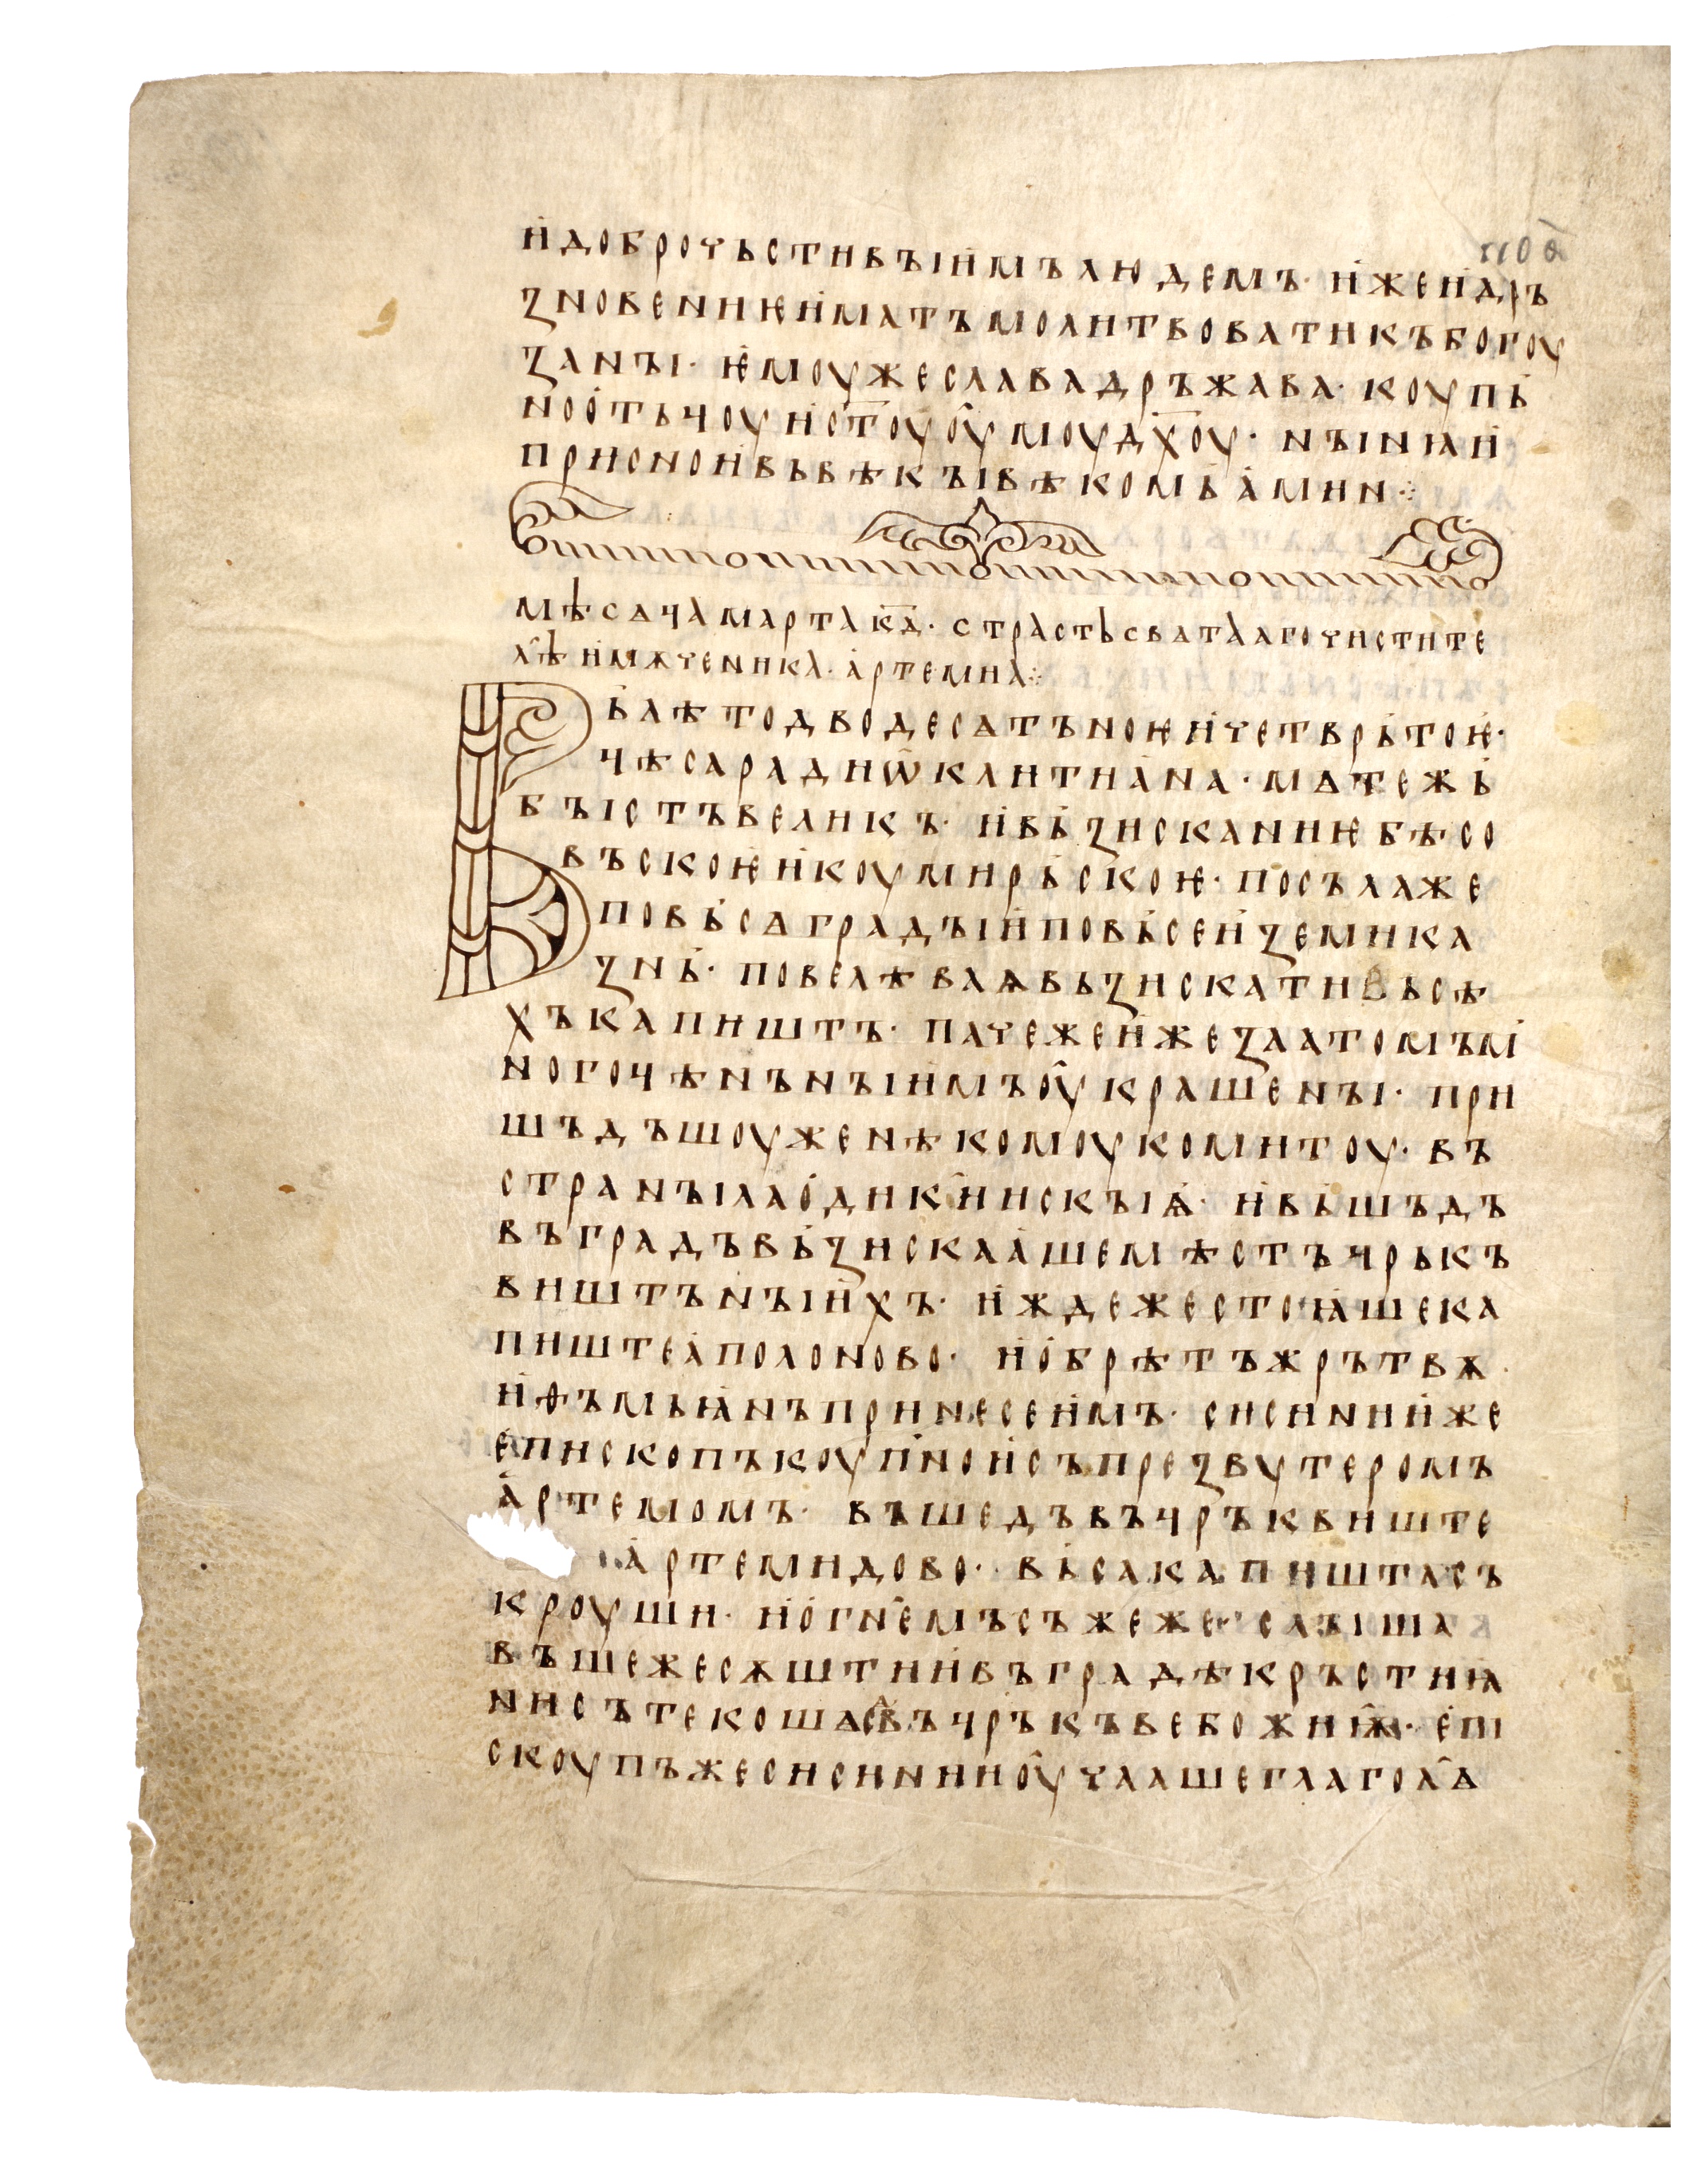 и҆доброчьстивъіи҆мъ людемъ· и҆жеи҆дръ
ꙁновениѥи҆матъмолитвоватикъбогоу
ꙁанъі· ѥ҆моужеславадръжава· коупь҆
ноо҆тьцоуи҆ст҃оуоу҆моудх҃оу· нъінꙗи҆
присно и҆въвѣкъівѣкомъ҆а҆мин҆·:·
мѣсѧцамартак҃д· страстьсвѧтааго чистите
л҄ѣ и҆мѫченика· а҆ртемиа·:·
Вь҆лѣтодводесѧтъноѥи҆четврь҆тоѥ҆·
цѣсарꙗдиѡ҆клитиа҆на· мѧтежь҆
бъістъвеликъ· и҆вь҆ꙁисканиѥбѣсо
въскоѥ҆и҆коумирь҆скоѥ· посълаже
повь҆сѧградъіи҆повь҆сеи҆ꙁемика
ꙁнь҆· повелѣваѩвьꙁискативьсѣ
хъкапиштъ· пачежеи҆жеꙁлатомъм҆
ногоцѣнънъіи҆мъоу҆крашенъі· при
шъдъшоуженѣкомоукомитоу· въ
странъілао҆дики҆искъіѩ҆· и҆вь҆шъдъ
въградъвь҆ꙁискаа҆шемѣстъцрькъ
виштънъіи҆хъ· и҆ждежестоꙗ҆шека
пиштеа҆полоново· и҆о҆брѣтъжрътвѫ
и҆ѳъмьꙗ҆нъпринесеи҆мъ· сисинии҆же
е҆пископъкоуп҆нои҆съпреꙁвѵтеромъ
а҆ртемомъ· въшедъвъцръквиште
а҆ртемидово· вь҆сакапиштасъ
кроуши· и҆о҆гн҄емъсъжеже· слъіша
въшежесѫштии҆въградѣкръстиꙗ
нисътекошѧсѧ҆въцръкъвебожиѭ҆· е҆пі
скоупъжесисинииоу҆чаашеглагол҄ѧ